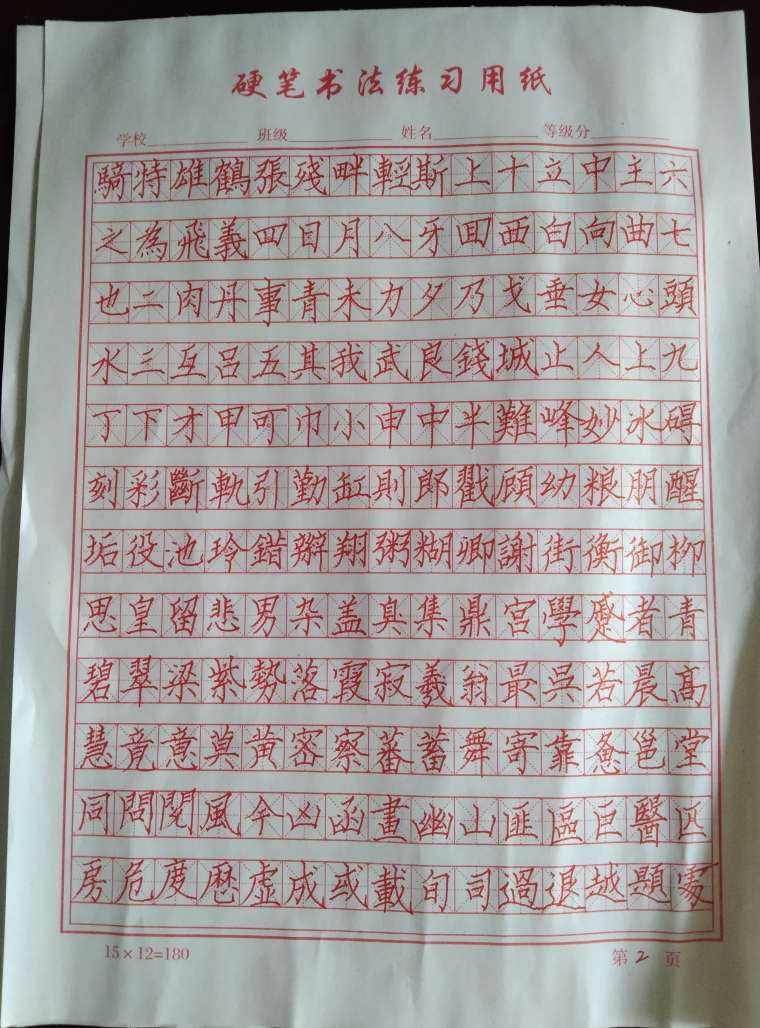 硬笔书法练习用纸
学校 班级 姓名 等级分
騎特雄鶴張殘畔輕斯上十立中主六
之為飛義四目月八牙田西白向曲七
也二肉丹事青未力夕乃戈垂女心頭
水三互呂五其我武良錢城止人上九
丁下才甲可巾小申中半難峰妙冰碍
刻彩斷軌引勤缸則郎戳顾幼粮朋醒
垢役池玲錯辮翔粥糊卿謝街衡御柳
思皇留悲男杂盖臭集鼎宮學蹙者青
碧翠梁紫勢落霞寂羲翁最吳若晨高
慧竟意莫黄密察蕃蓄舞寄靠惫邕堂
同問閲風令凶函畫幽山匪區巨醫匹
房危度歷虚成或載旬司過退越題
15×12=180
第2页